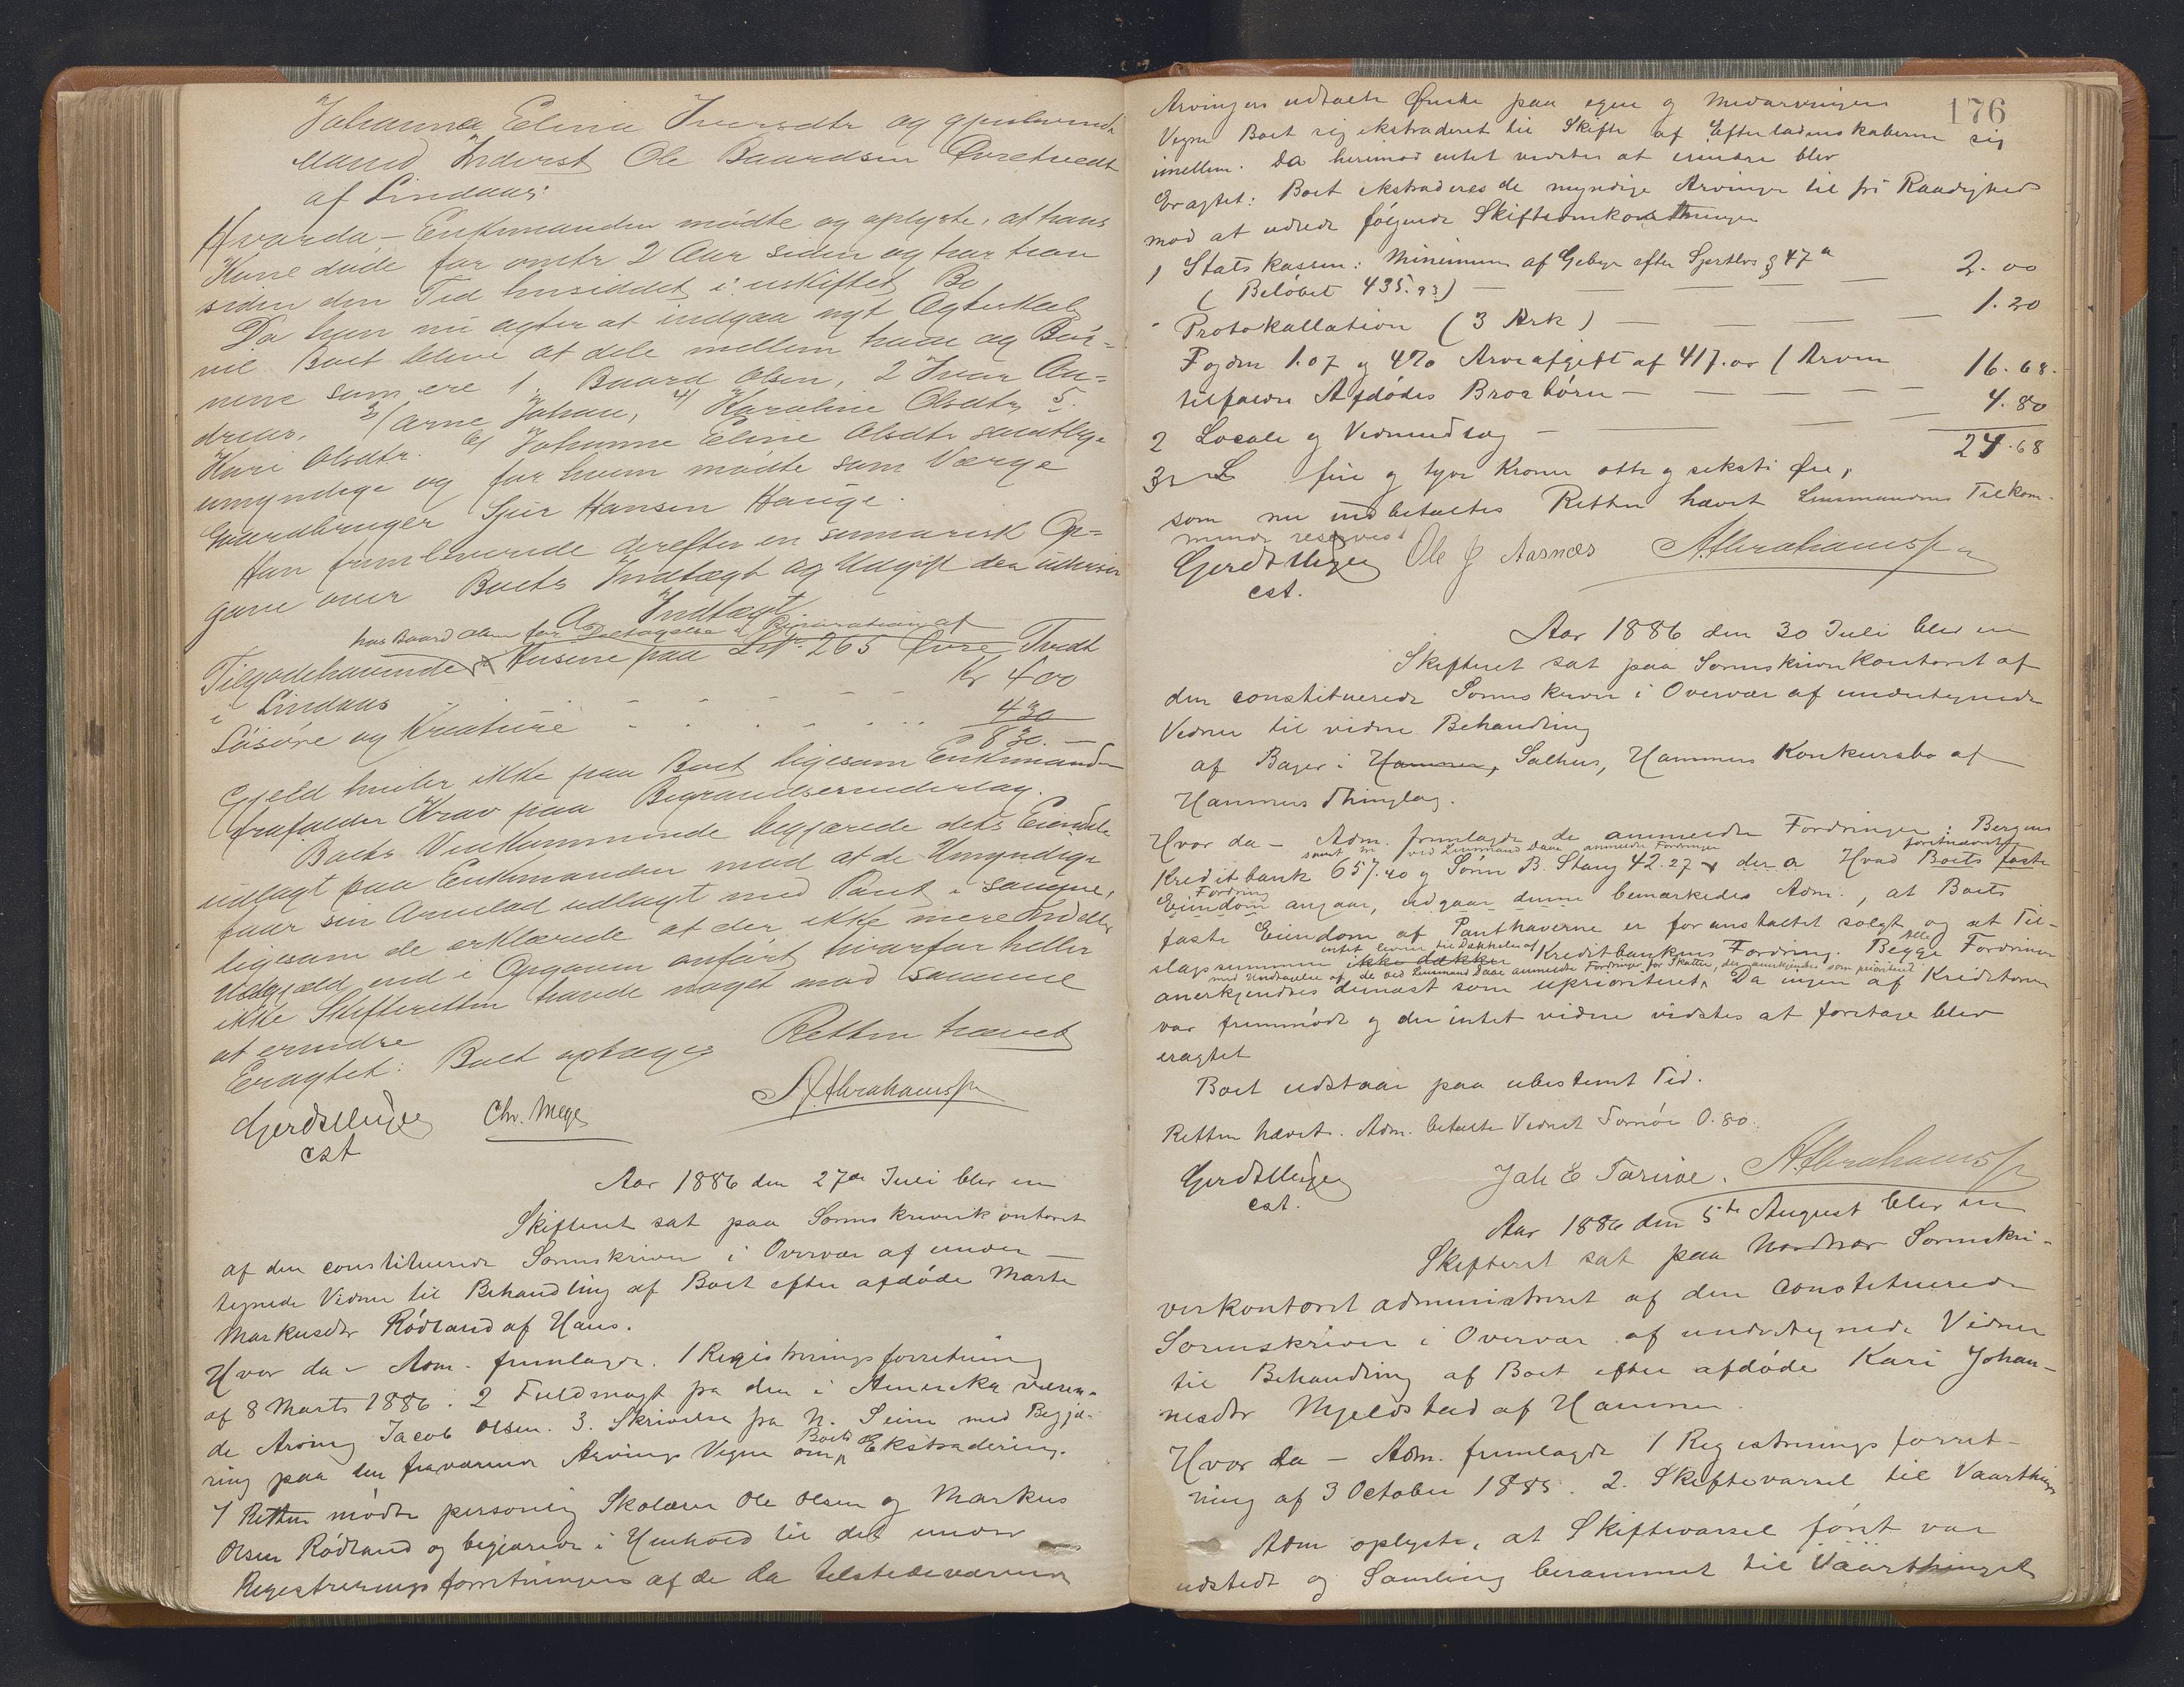 Johanna Eline Iversdtr og gjenlevende
Mand Inderst Ole Baardsen Øvretvedt
af Lindaas:
Hvorda – Enkemanden mødte og oplyste, at hans
Kone døde for omtr 2 Aar siden og har han
siden den Tid hensiddet i uskiftet Bo
Da han nu agter at indgaa nyt Ægteskab
vil Boet blive at dele mellem ham og Bør-
nene som ere 1. Baard Olsen, 2 Ivar An-
dreas, 3/ Arne Johan, 4/ Karoline Olsdtr 5.
Kari Olsdtr. 6/ Johanne Eline Olsdtr samtlige
umyndige og for hvem mødte som Værge
Gaardbruger Sjur Hansen Hauge.
Han fremleverede derefter en summarisk Op-
gave over Boets Indtægt og Udgift der udviser
A Indtægt
hos Baard Olsen for Deltagelse i Reparation af
Tilgodehavende Husene paa Lnr. 265 Øvre Tvedt
i Lindaas - - - - Kr 400
Løsøre og Kreature - - - - 430
830. –
Gjeld hviler ikke paa Boet ligesom Enkemanden
frafalder Krav paa Begravelsesvederlag.
Boets Vedkommende begjærede dets Eiendele
udlagt paa Enkemanden mod at de Umyndige
faar sin Arvelod udlagt med Pant i samme,
ligesom de erklærede at der ikke mere Indell.
Udgjæld end i Opgaven anført, hvorfor heller
ikke Skifteretten havde noget mod samme
at erindre
Eragtet: Boet optages Retten hævet
Gerdt Meyer Chr. Mege A. Abrahamsen
cst
Aar 1886 den 27de Juli blev en
Skifteret sat paa Sorenskriverkontoret
af den constituerede Sorenskriver i Overvær af under-
tegnede Vidner til Behandling af Boet efter afdøde Marte
Markusdtr Rødland af Haus.
Hvor da – Adm. fremlagde. 1 Registreringsforretning
af 8 Marts 1886. 2 Fuldmagt fra den i Amerika væren-
de Arving Jacob Olsen. 3. Skrivelse fra N. Seim med Begjæ-
ring paa den fraværende Arvings Vegne om Boets Ekstradering.
I Retten mødte personlig Skolelærer Ole Olsen og Markus
Olsen Rødland og begjærede i Henhold til det under
Registreringsforretningen af de da tilstedeværende
176
Arvinger udtalte Ønske paa egne og Medarvingers
Vegne Boet sig ekstraderet til Skifte af Efterladenskaberne sig
imellem. Da herimod intet vidstes at erindre blev
Eragtet: Boet ekstraderes de myndige Arvinger til fri Raadighed
mod at udrede følgende Skifteomkostninger
1 Statskassen: Minimum af Gebyr efter Sportlov § 47 a
(Beløbet 435.93) – – – 2.00
" Protokollation (3 Ark) – – – 1.20
Fogden 1.07 og 4% Arveafgift af 417.00 (Arven
tilfalder Afdødes Brorbørn – – – 16.68.
2 Locale og Vidnendsag – – 4.80
3 fire og tyve Kroner otte og seksti Øre, 24.68
som nu indbetaltes Retten hævet Lensmandens Tilkom-
mende reserves
Gerdt Meyer Ole J Aasnæs A. Abrahamsen
cst.
Aar 1886 den 30 Juli blev en
Skifteret sat paa Sorenskriverkontoret af
den constituerede Sorenskriver i Overvær af undertegnede
Vidner til videre Behandling
af Bager i Hammer, Salhus, Hammers Konkursbo af
Hammers Thinglag.
Hvor da – Adm. fremlagde de anmeldte Fordringer: Bergens
samt en ved Lensmand Daae anmeldte Fordringer
Kreditbank 657.40 og Søren B. Stang 42.27 Hvad Boets faste
Fordring
Eiendom angaar, udgaar denne bemærkedes Adm., at Boets
faste Eiendom af Panthaverne er foranstaltet solgt og at Til-
intet levner til Dækkelse af
slagssummen ikke dækker Kreditbankens Fordring. Begge Alle Fordringer
med Undtagelse af de ved Lensmand Daae anmeldte Fordringer for Skatter, der anerkjendes som prioriteret
anerkjendtes dernæst som uprioriteret. Da ingen af Kreditorerne
var fremmødt og der intet videre vidstes at foretage blev
eragtet
Boet udstaar paa ubestemt Tid.
Retten hævet. Adm. betalte Vidnet Tornøe 0.80.
Gerdt Meyer Jah E Tornøe. A. Abrahamsen
cst.
Aar 1886 den 5te August blev en
Skifteret sat paa Sorenskri-
verkontoret administreret af den constituerede
Sorenskriver i Overvær af undertegnede Vidner
til Behandling af Boet efter afdøde Kari Johan-
nesdtr Mjeldstad af Hammer.
Hvor da – Adm. fremlagde 1 Registreringsforret-
ning af 3 October 1885. 2. Skiftevarsel til Vaarthing
Adm oplyste, at Skiftevarsel først var
udstedt og Samling berammet til Vaarthinget